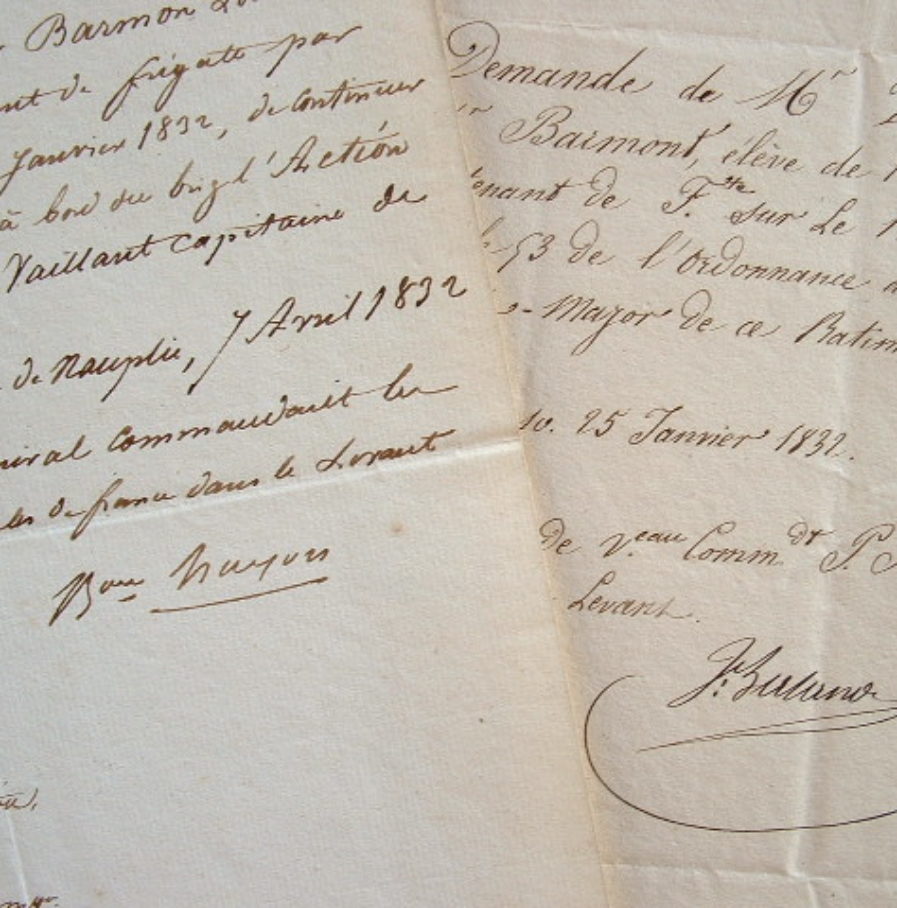 Barmon
de frigate par
Janvier 1832, de Continuer
à bord du brig l'Actéon
Vaillant capitaine de
de Nauplie, 7 Avril 1832
Commandant les
de france dans le Levant
Bon Hugon
Demande de Mr
Barmont, élève de
tenant de F.tte sur Le
53 de l'Ordonnance
Major de ce Batim
25 Janvier 1832.
de veau Commdt
Levant.